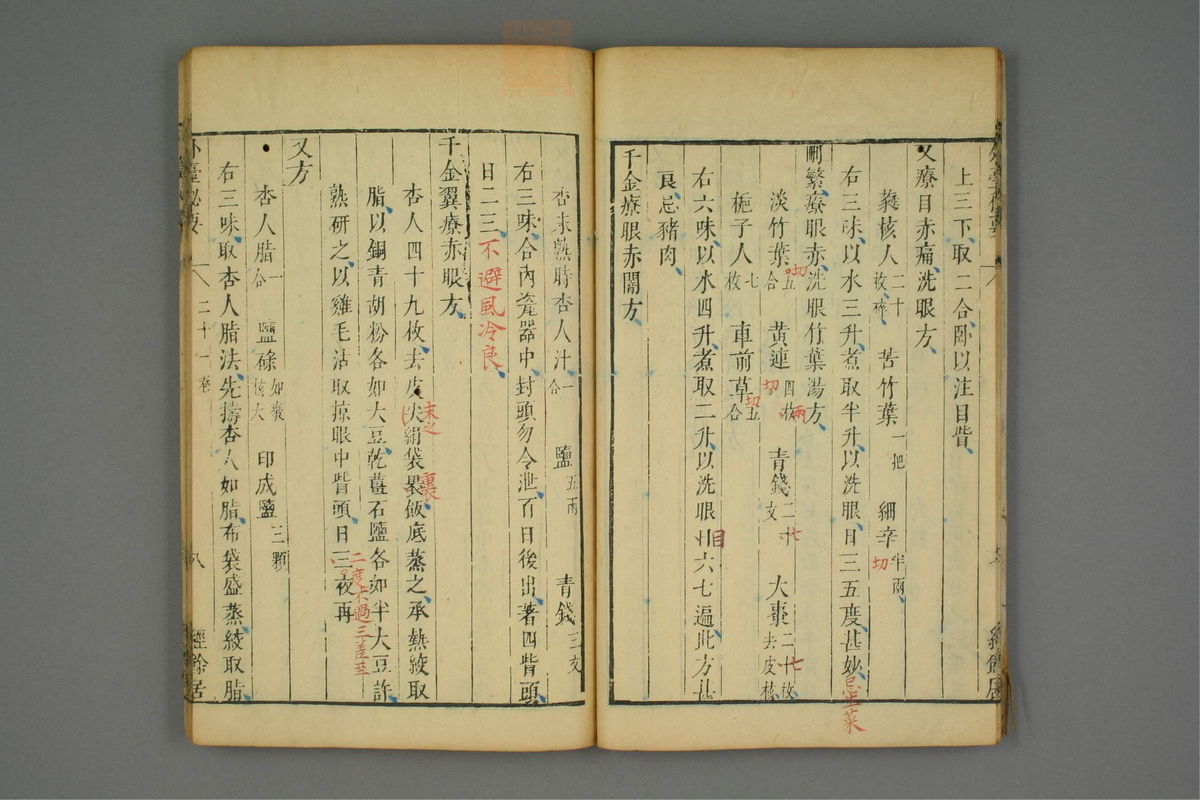 上三下取二合卧以注目眥
又療目赤痛洗眼方
蕤核人二十枚碎 苦竹葉一把 細辛半兩切
右三味以水三升煮取半升以洗眼日三五度甚妙忌生菜
刪繁療眼赤洗眼竹葉湯方
淡竹葉五合切 黃連四枚兩切 青錢二十文七 大棗二十枚去皮核七
梔子人七枚 車前草五合切
右六味以水四升煮取二升以洗眼日六七遍此方甚
良忌豬肉
千金療眼赤闇方
杏末熟時杏人汁一合 鹽五兩 青錢三文
右三味合內瓷器中封頭勿令泄百日後出著四眥頭
日二三不避風冷良
千金翼療赤眼方
杏人四十九枚去皮尖末之絹袋裹飯底蒸之承熱絞取
脂以銅青胡粉各如大豆乾薑石鹽各如半大豆許
熟研之以雞毛沾取掠眼中眥頭日二度不過三差
三夜再
又方
杏人脂一合 鹽碌如棗核大 印成鹽三顆
右三味取杏人脂法先擣杏人如脂布袋盛蒸絞取脂
外臺秘要 二十一卷 八 經餘居